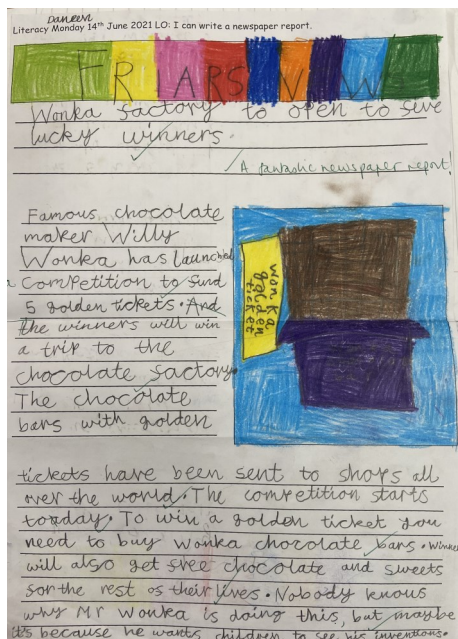 Daneen
Literacy Monday 14th June 2021 LO: I can write a newspaper report.
FRIARS VIEW
Wonka factory to open to five
lucky winners.
A fantastic newspaper report!
Famous chocolate
maker Willy
Wonka has launched
a competition to find
5 golden tickets. And
the winners will win
a trip to the
chocolate factory.
The chocolate
bars with golden
wonka
golden
ticket
tickets have been sent to shops all
over the world. The competition starts
today. To win a golden ticket you
need to buy wonka chocolate bars. Winners
will also get free chocolate and sweets
for the rest of their lives. Nobody knows
why Mr Wonka is doing this, but maybe
it's because he wants children to see his inventions.